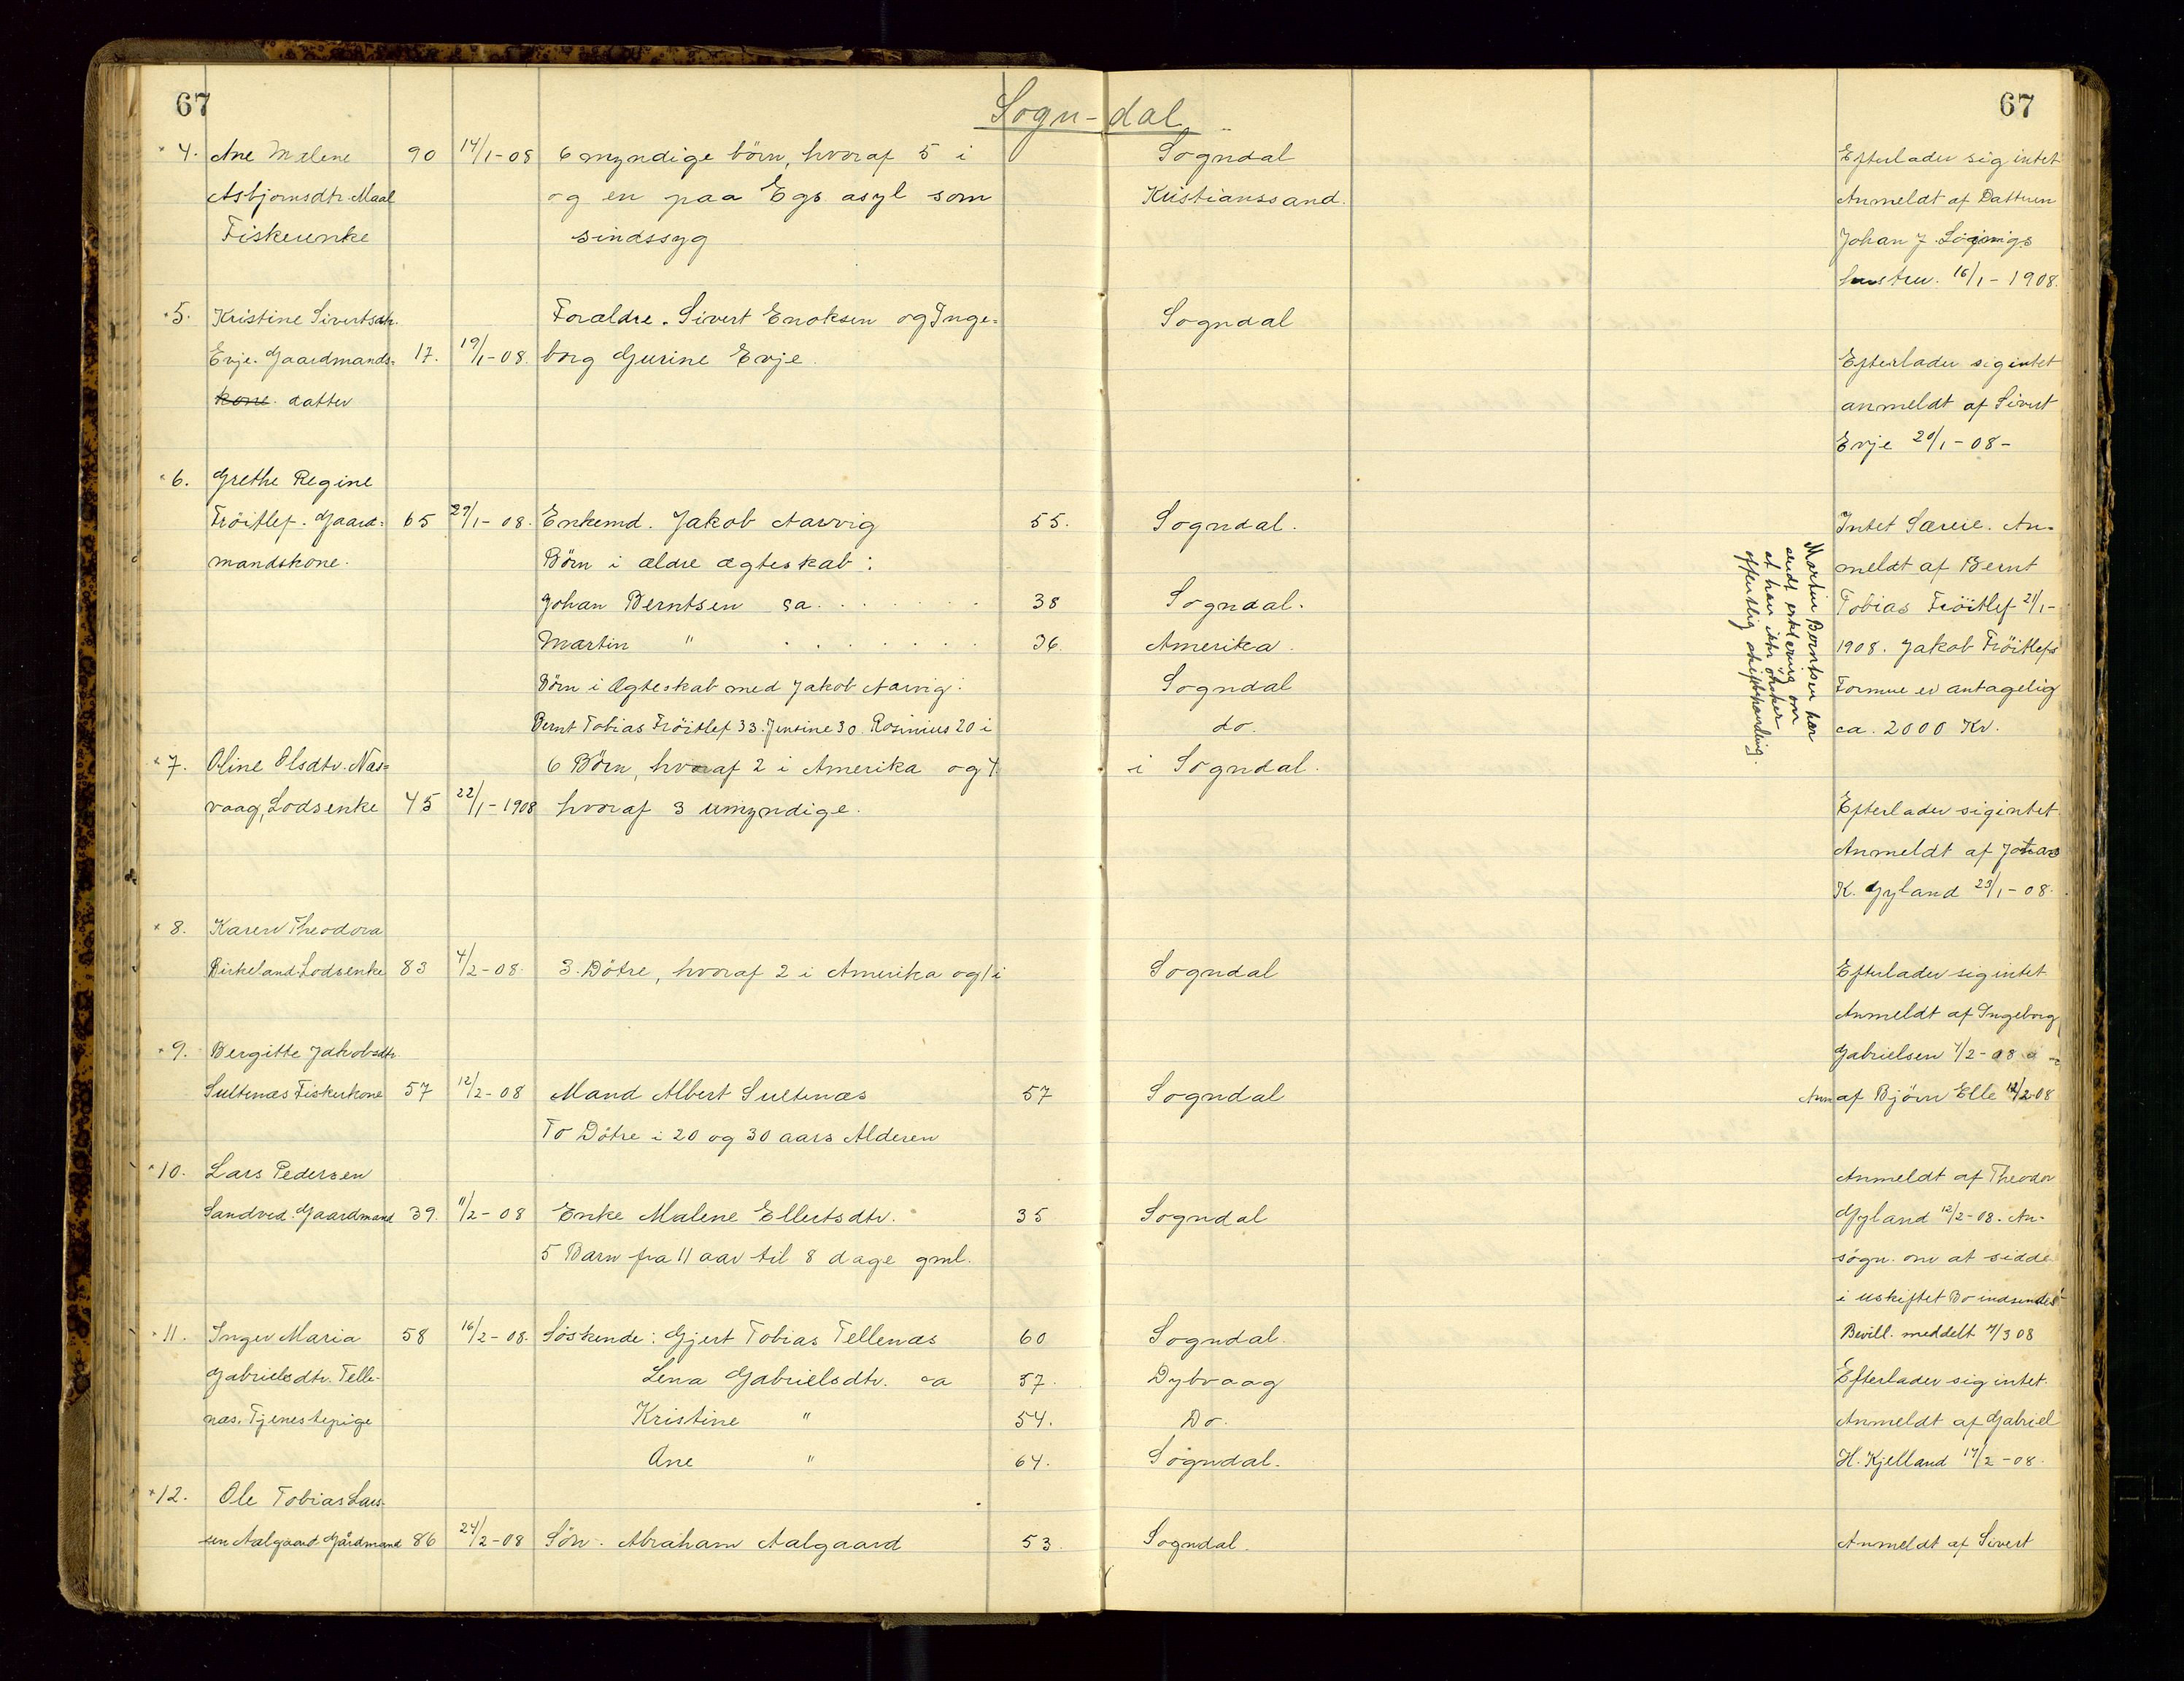 67
67
Sogn-dal
4. Ane Malene 90 14/1-08 6 myndige börn, hvoraf 5 i Sogndal Efterlader sig intet
Asbjornsdtr. Maal og en paa Egs asyl som Kristianssand. Anmeldt af Datteren
Fiskerenke sindssyg Johan J.
hustru. 16/1-1908.
5. Kristine Sivertsdtr. Forældre. Sivert Enoksen og Inge= Sogndal
Evje. Gaardmands= 17. 19/1-08. borg Gurine Evje. Efterlader sig intet
kone. datter anmeldt af Sivert
Evje 20/1-08-
6. Grethe Regine
Fröitlef. Gaard= 65 /1-08. Enkemd. Jakob Aarvig 55. Sogndal. Intet Særeie. An=
mandskone. Börn i ældre ægteskab: meldt af Bernt
Johan Berntsen ca. 38 Sogndal. Tobias Fröitlef 21/1-
Martin " 36. Amerika. 1908. Jakob Fröitlefs
Börn i Ægteskab med Jakob Aarvig: Sogndal Formue er antagelig
Bernt Tobias Fröitlef 33. Jensine 30. Rosinius 20 i do. ca. 2000 Kr.
Martin Berntsen har
sendt erklæring om
at han ikke önsker
offentlig skiftehandling.
7. Oline Olsdtr. Nes= 6 Börn, hvoraf 2 i Amerika og 4 i Sogndal.
vaag, Lodsenke 45 22/1-1908 hvoraf 3 umyndige. Efterlader sig intet.
Anmeldt af
K. Gyland 23/1-08.
8. Karen Theodora
Birkeland. Lodsenke 83 4/2-08. 3. Dötre, hvoraf 2 i Amerika og 1 i Sogndal Efterlader sig intet
Anmeldt af Ingeborg
9. Bergitte Jakobsdtr. Gabrielsen 7/2-08
Sultenæs Fiskerkone 57 12/2-08 Mand Albert Sultenæs 57 Sogndal Anm af Björn Elle 12/2-08
To Dötre i 20 og 30 aars Alderen
10. Lars Pedersen Anmeldt af Theodor
Sandved. Gaardmand 39. 11/2-08 Enke Malene Ellertsdtr. 35 Sogndal Gyland 12/2-08. An-
5 Barn fra 11 aar til 8 dage gml. sögn. om at sidde
i uskiftet Bo indsendes
11. Inger Maria 58 16/2-08. Söskende: Gjert Tobias Tellenæs 60 Sogndal. Bevill. meddelt /3 08
Gabrielsdtr. Telle- Lena Gabrielsdtr. ca 57. Dybvaag Efterlader sig intet.
næs. Tjenestepige Kristine " 54. Do. Anmeldt af Gabriel
Ane " 64. Sogndal. H. Kjelland 17/2-08.
12. Ole Tobias Lars-
sen Aalgaard Gårdmand 86 24/2-08 Sön. Abraham Aalgaard 53. Sogndal. Anmeldt af Sivert